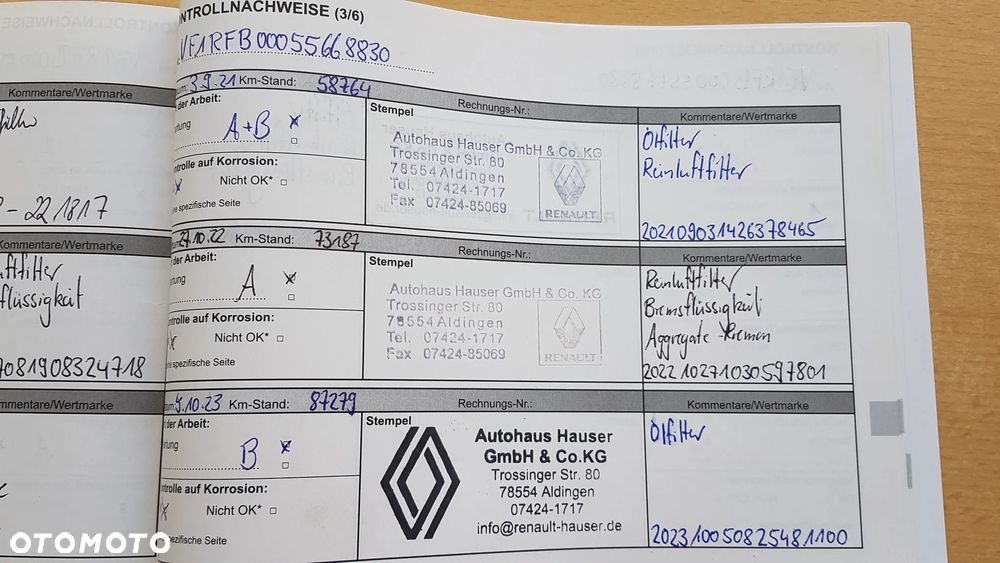 Kommentare/Wertmarke
221817
Kommentare/Wertmarke
flüssigkeit
081908324718
Kommentare/Wertmarke
NTROLLNACHWEISE (3/6)
VF1RFB00055668830
3.9.21 Km-Stand: 58764
Rechnungs-Nr.:
Kommentare/Wertmarke
der Arbeit:
A+B x
Stempel
Autohaus Hauser GmbH & Co. KG
Trossinger Str. 80
78554 Aldingen
Tel. 07424-1717
Fax 07424-85069
RENAULT
Ölfilter
Reinluftfilter
20210903142637 8465
ntrolle auf Korrosion:
Nicht OK*
spezifische Seite
27.10.22 Km-Stand: 73187
Rechnungs-Nr.:
Kommentare/Wertmarke
der Arbeit:
A x
Stempel
Autohaus Hauser GmbH & Co. KG
Trossinger Str. 80
78554 Aldingen
Tel. 07424-1717
Fax 07424-85069
RENAULT
Reinluftfilter
Bremsflüssigkeit
Aggregate-Riemen
20221027103059 7801
ntrolle auf Korrosion:
Nicht OK*
spezifische Seite
5.10.23 Km-Stand: 87279
Rechnungs-Nr.:
Kommentare/Wertmarke
der Arbeit:
B x
Stempel
Autohaus Hauser
GmbH & Co.KG
Trossinger Str. 80
78554 Aldingen
07424-1717
info@renault-hauser.de
Ölfilter
20231005082548 1100
ntrolle auf Korrosion:
Nicht OK*
spezifische Seite
OTOMOTO